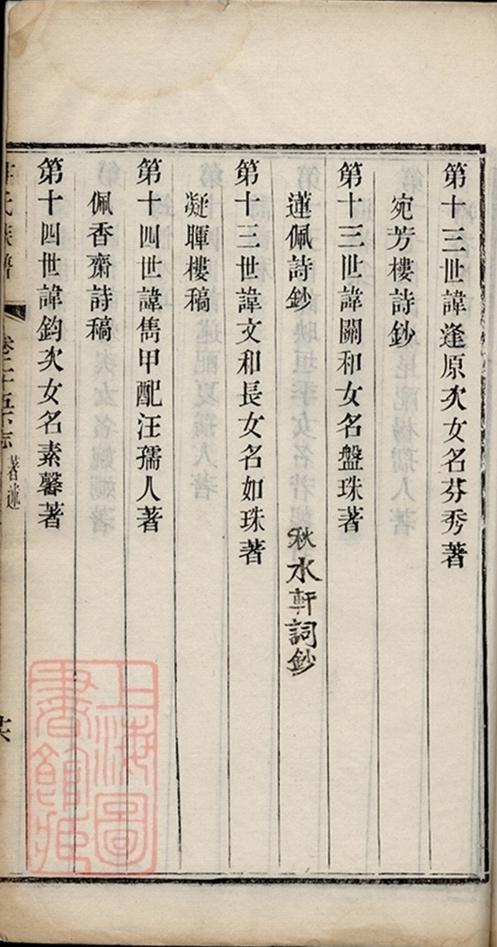 第十三世諱逢原次女名芬秀著
宛芳樓詩鈔
第十三世諱關和女名盤珠著
蓮佩詩鈔 秋水軒詞鈔
第十三世諱文和長女名如珠著
凝暉樓稿
第十四世諱雋甲配汪孺人著
佩香齋詩稿
第十四世諱鈞次女名素馨著
氏族譜 卷二十 志 著述
上海圖
書館藏